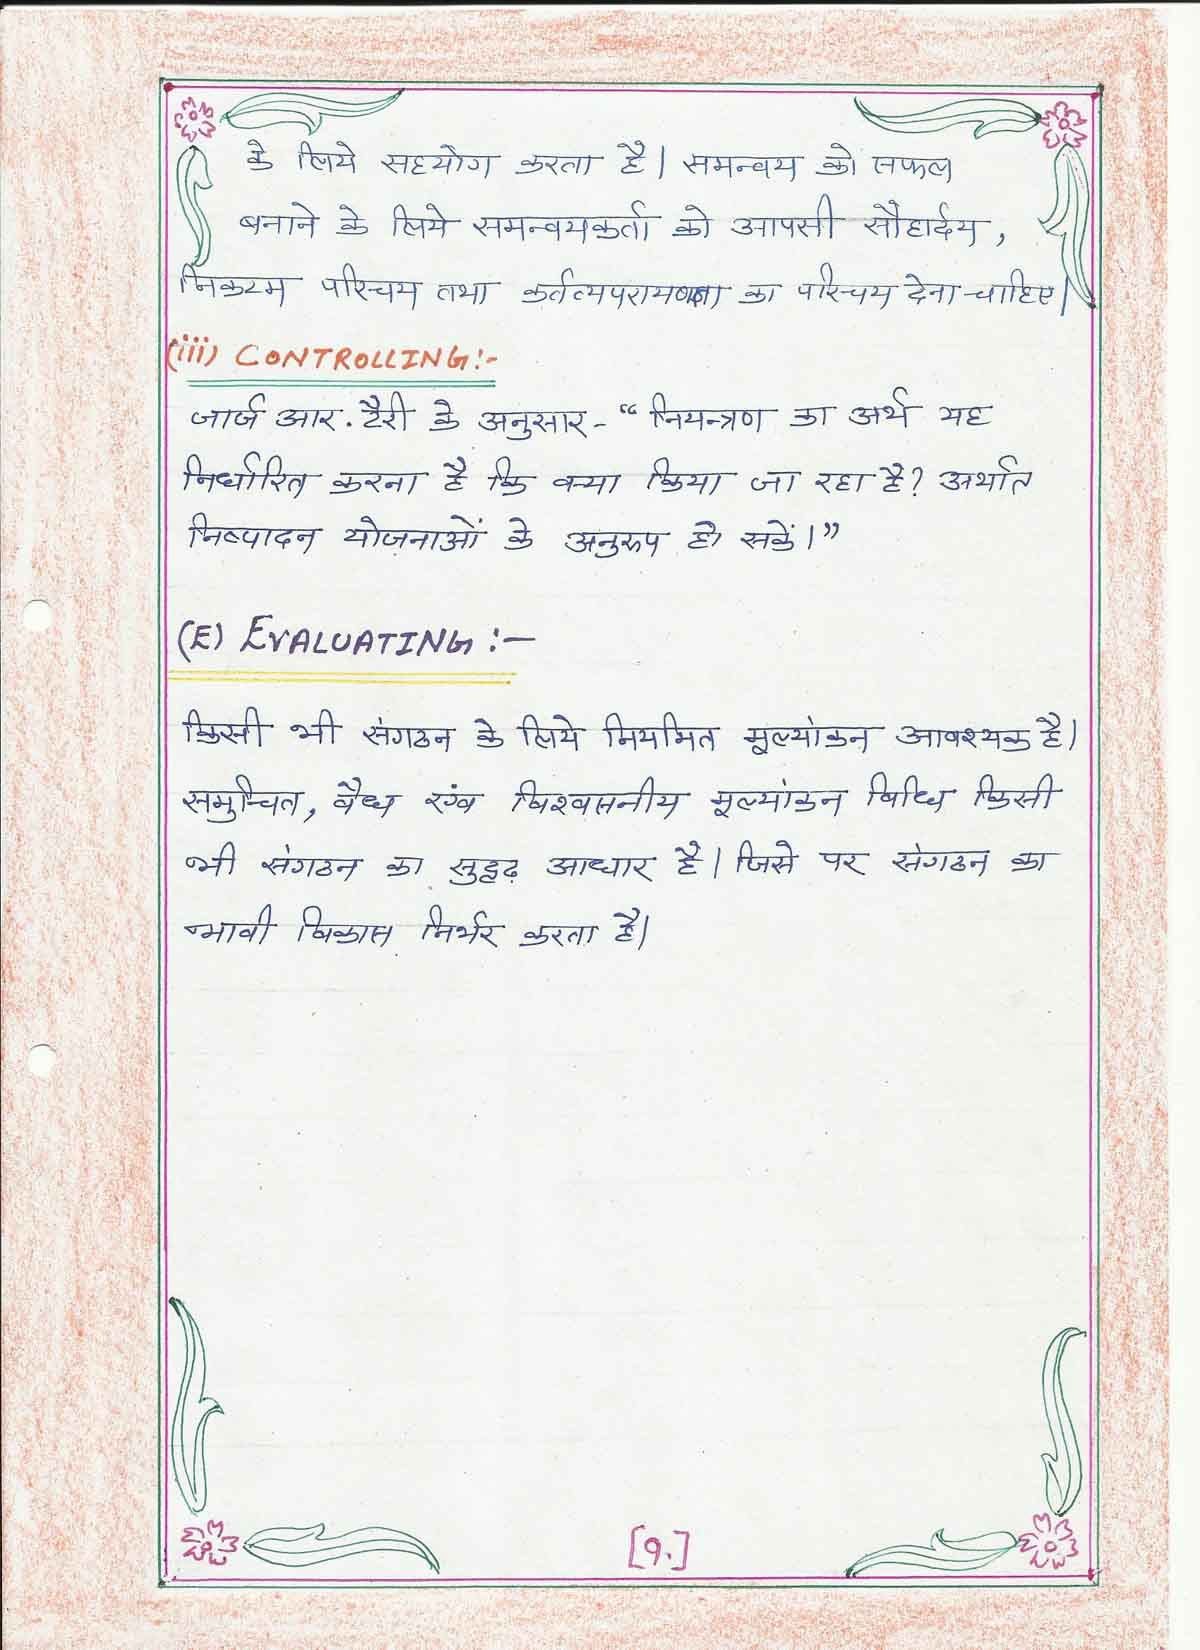 के लिये सहयोग करता है। समन्वय को सफल
बनाने के लिये समन्वयकर्ता को आपसी सौहार्दय,
निकटम परिचय तथा का परिचय देना चाहिए।
(iii) CONTROLLING:-
जार्ज आर. टैरी के अनुसार- “नियन्त्रण का अर्थ यह
निर्धारित करना है कि क्या किया जा रहा है? अर्थात
निष्पादन योजनाओं के अनुरुप हो सकें।”
(E) EVALUATING:-
किसी भी संगठन के लिये नियमित मूल्यांकन आवश्यक है।
समुचित, वैध एंव विश्वसनीय मूल्यांकन विधि किसी
भी संगठन का सुदृढ़ आधार है। जिसे पर संगठन का
भावी विकास निर्भर करता है।
[9.]